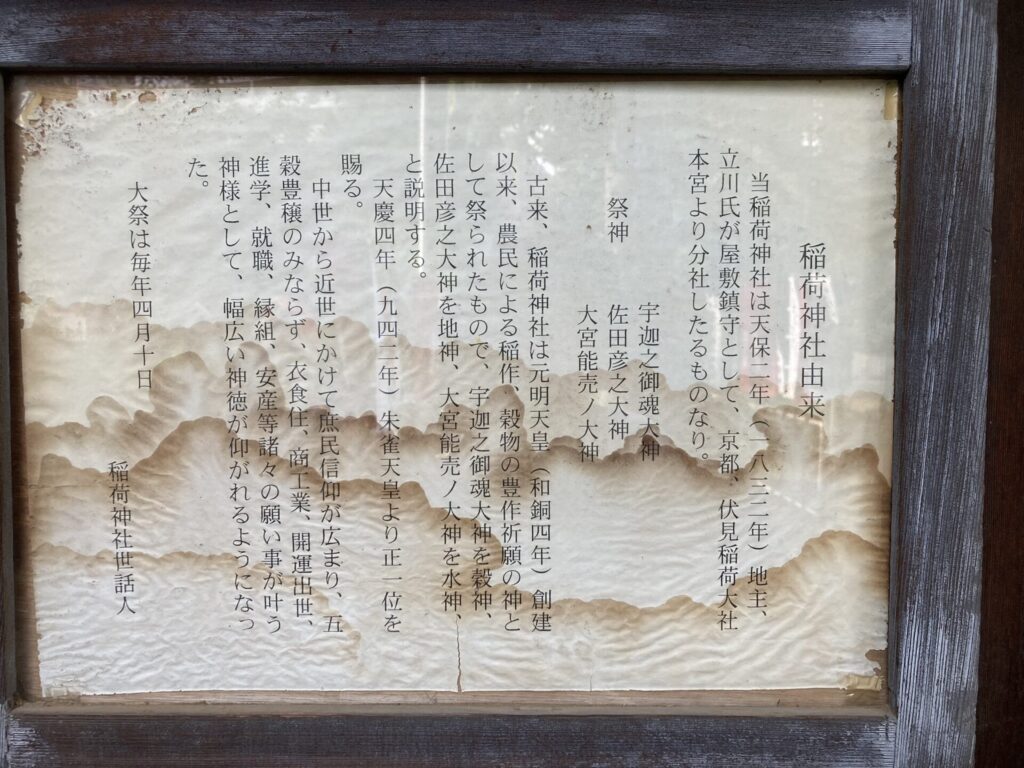 稲荷神社由来
当稲荷神社は天保二年（一八三二年）地主、
立川氏が屋敷鎮守として、京都、伏見稲荷大社
本宮より分社したるものなり。
宇迦之御魂大神
祭神　佐田彦之大神
大宮能売ノ大神
古来、稲荷神社は元明天皇（和銅四年）創建
以来、農民による稲作、穀物の豊作祈願の神と
して祭られたもので、宇迦之御魂大神を穀神、
佐田彦之大神を地神、大宮能売ノ大神を水神、
と説明する。
天慶四年（九四二年）朱雀天皇より正一位を
賜る。
中世から近世にかけて庶民信仰が広まり、五
穀豊穣のみならず、衣食住、商工業、開運出世、
進学、就職、縁組、安産等諸々の願い事が叶う
神様として、幅広い神徳が仰がれるようになっ
た。
大祭は毎年四月十日
稲荷神社世話人